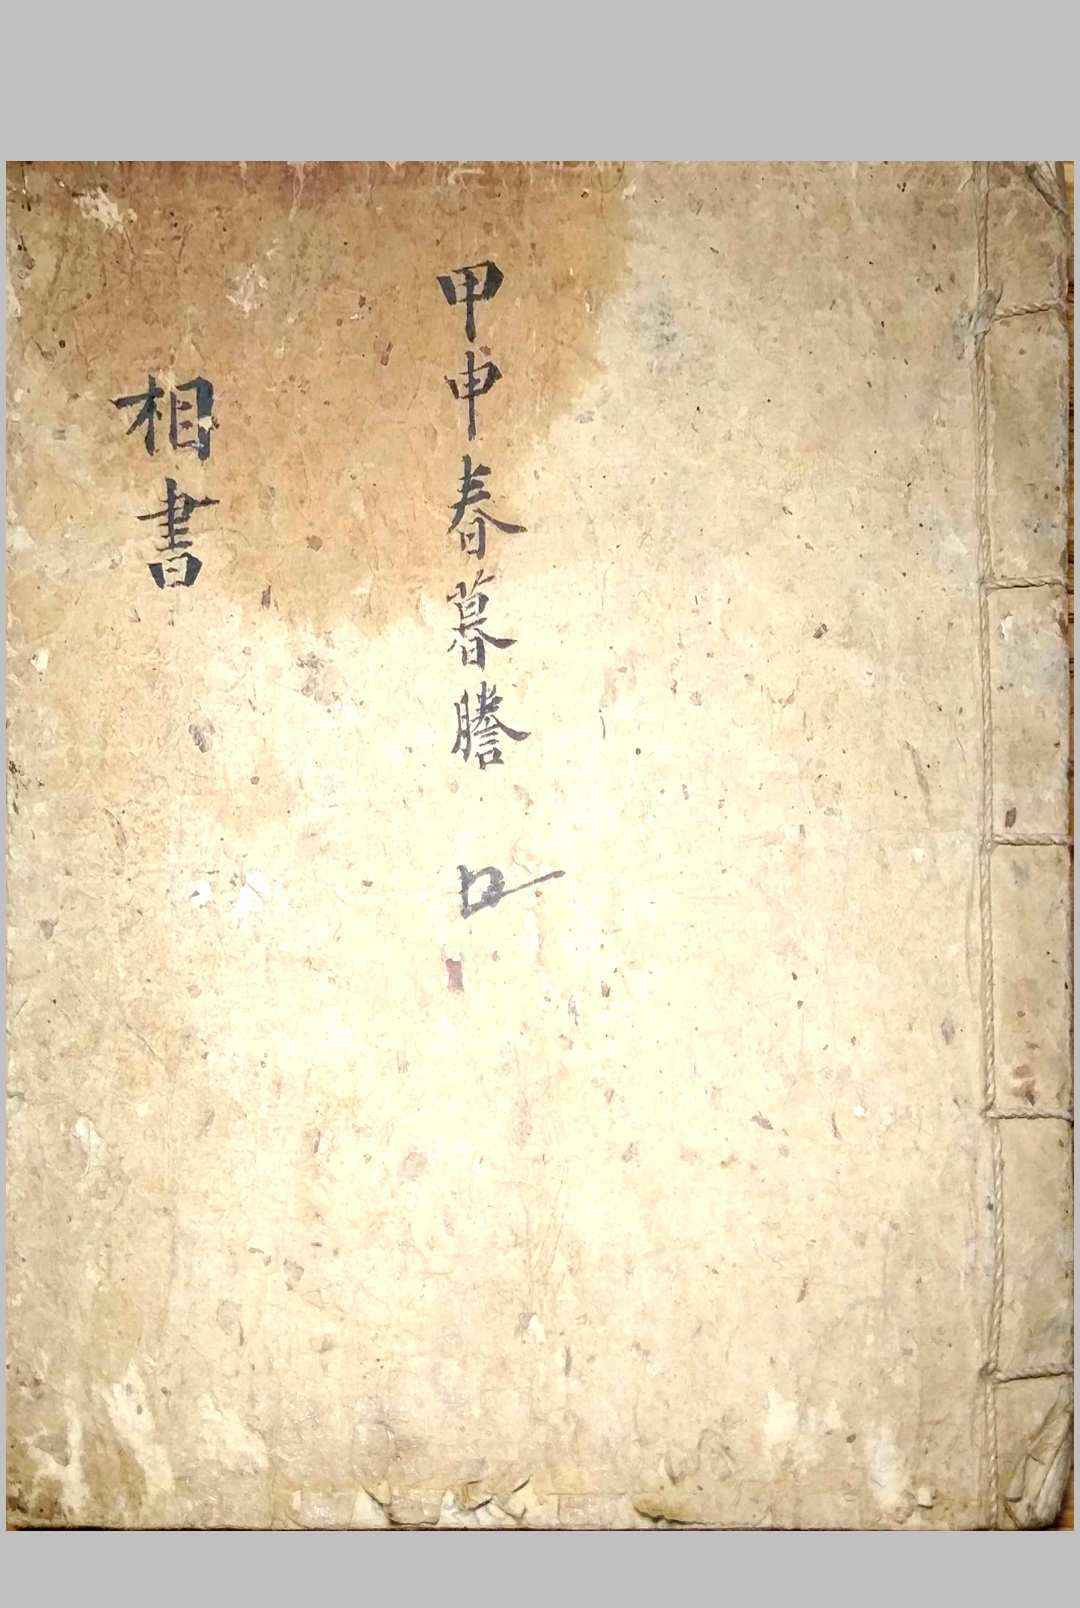 甲申春暮謄
相書